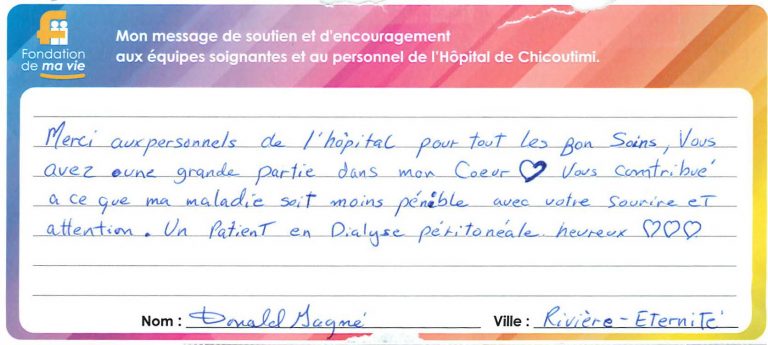 Fondation
de ma vie
Mon message de soutien et d'encouragement
aux équipes soignantes et au personnel de l'Hôpital de Chicoutimi.
Merci aux personnels de l'hôpital pour tout les Bon Soins, Vous
avez une grande partie dans mon Coeur ♥ Vous contribué
a ce que ma maladie soit moins pénible avec votre sourire et
attention. Un Patient en Dialyse péritonéale heureux ♡♡♡
Nom : Donald Gagné Ville : Rivière-Eternité